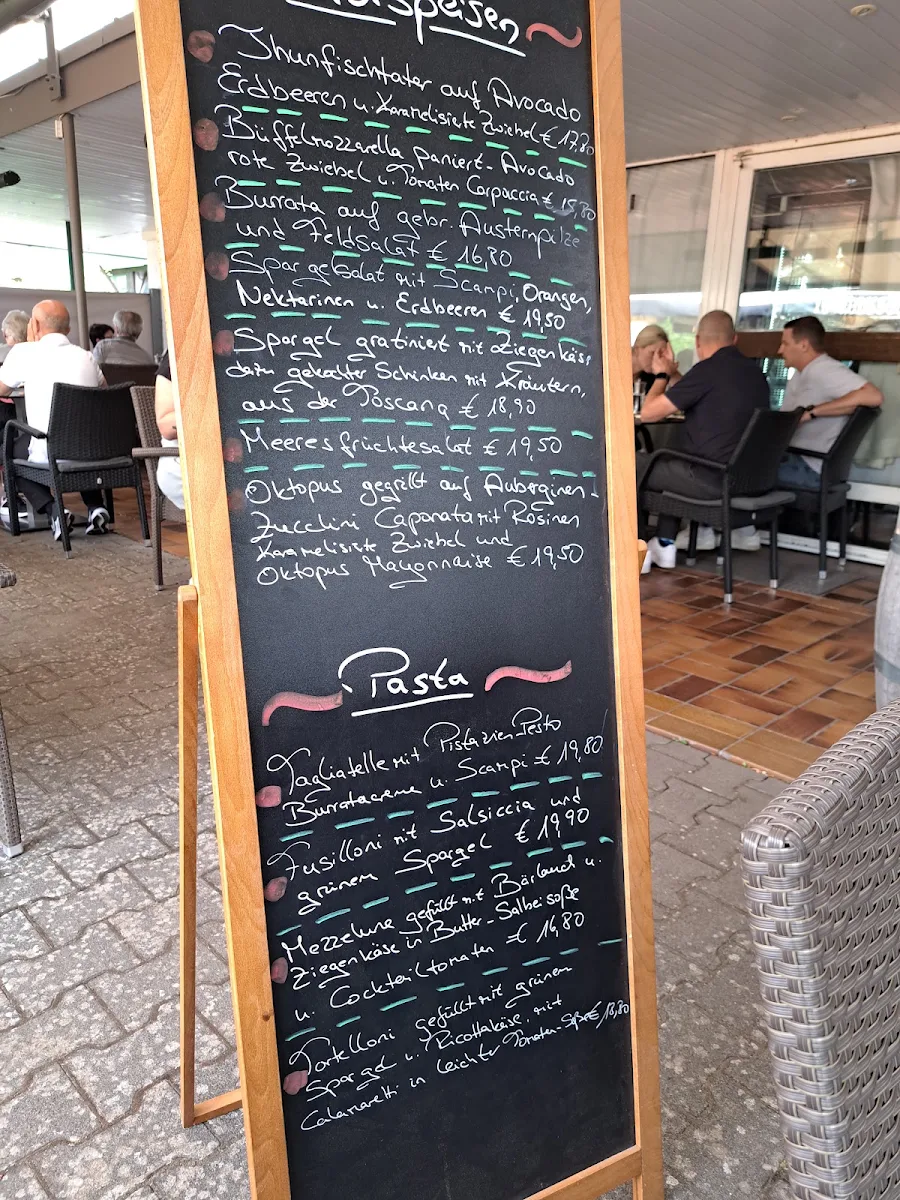 Vorspeisen
Thunfischtatar auf Avocado
Erdbeeren u. Karamelisierte Zwiebel € 17,80
Büffelmozzarella paniert - Avocado
rote Zwiebel u. Tomaten Carpaccia € 15,80
Burrata auf gebr. Austernpilze
und Feldsalat € 16,80
Spargelsalat mit Scampi, Orangen,
Nektarinen u. Erdbeeren € 19,50
Spargel gratiniert mit Ziegenkäse
dazu gekochter Schinken mit Kräutern,
aus der Toscana € 18,90
Meeresfrüchtesalat € 19,50
Oktopus gegrillt auf Auberginen-
Zucchini Caponata mit Rosinen
Karamelisierte Zwiebel und
Oktopus Mayonnaise € 19,50
Pasta
Tagliatelle mit Pistazien-Pesto
Burratacreme u. Scampi € 19,80
Fusilloni mit Salsiccia und
grünem Spargel € 19,90
Mezzelune gefüllt mit Bärlauch u.
Ziegenkäse in Butter-Salbeisoße
u. Cocktailtomaten € 16,80
Tortelloni gefüllt mit grünem
Spargel u. Ricottakäse, mit
Calamaretti in leichter Tomaten-Soße € 18,80